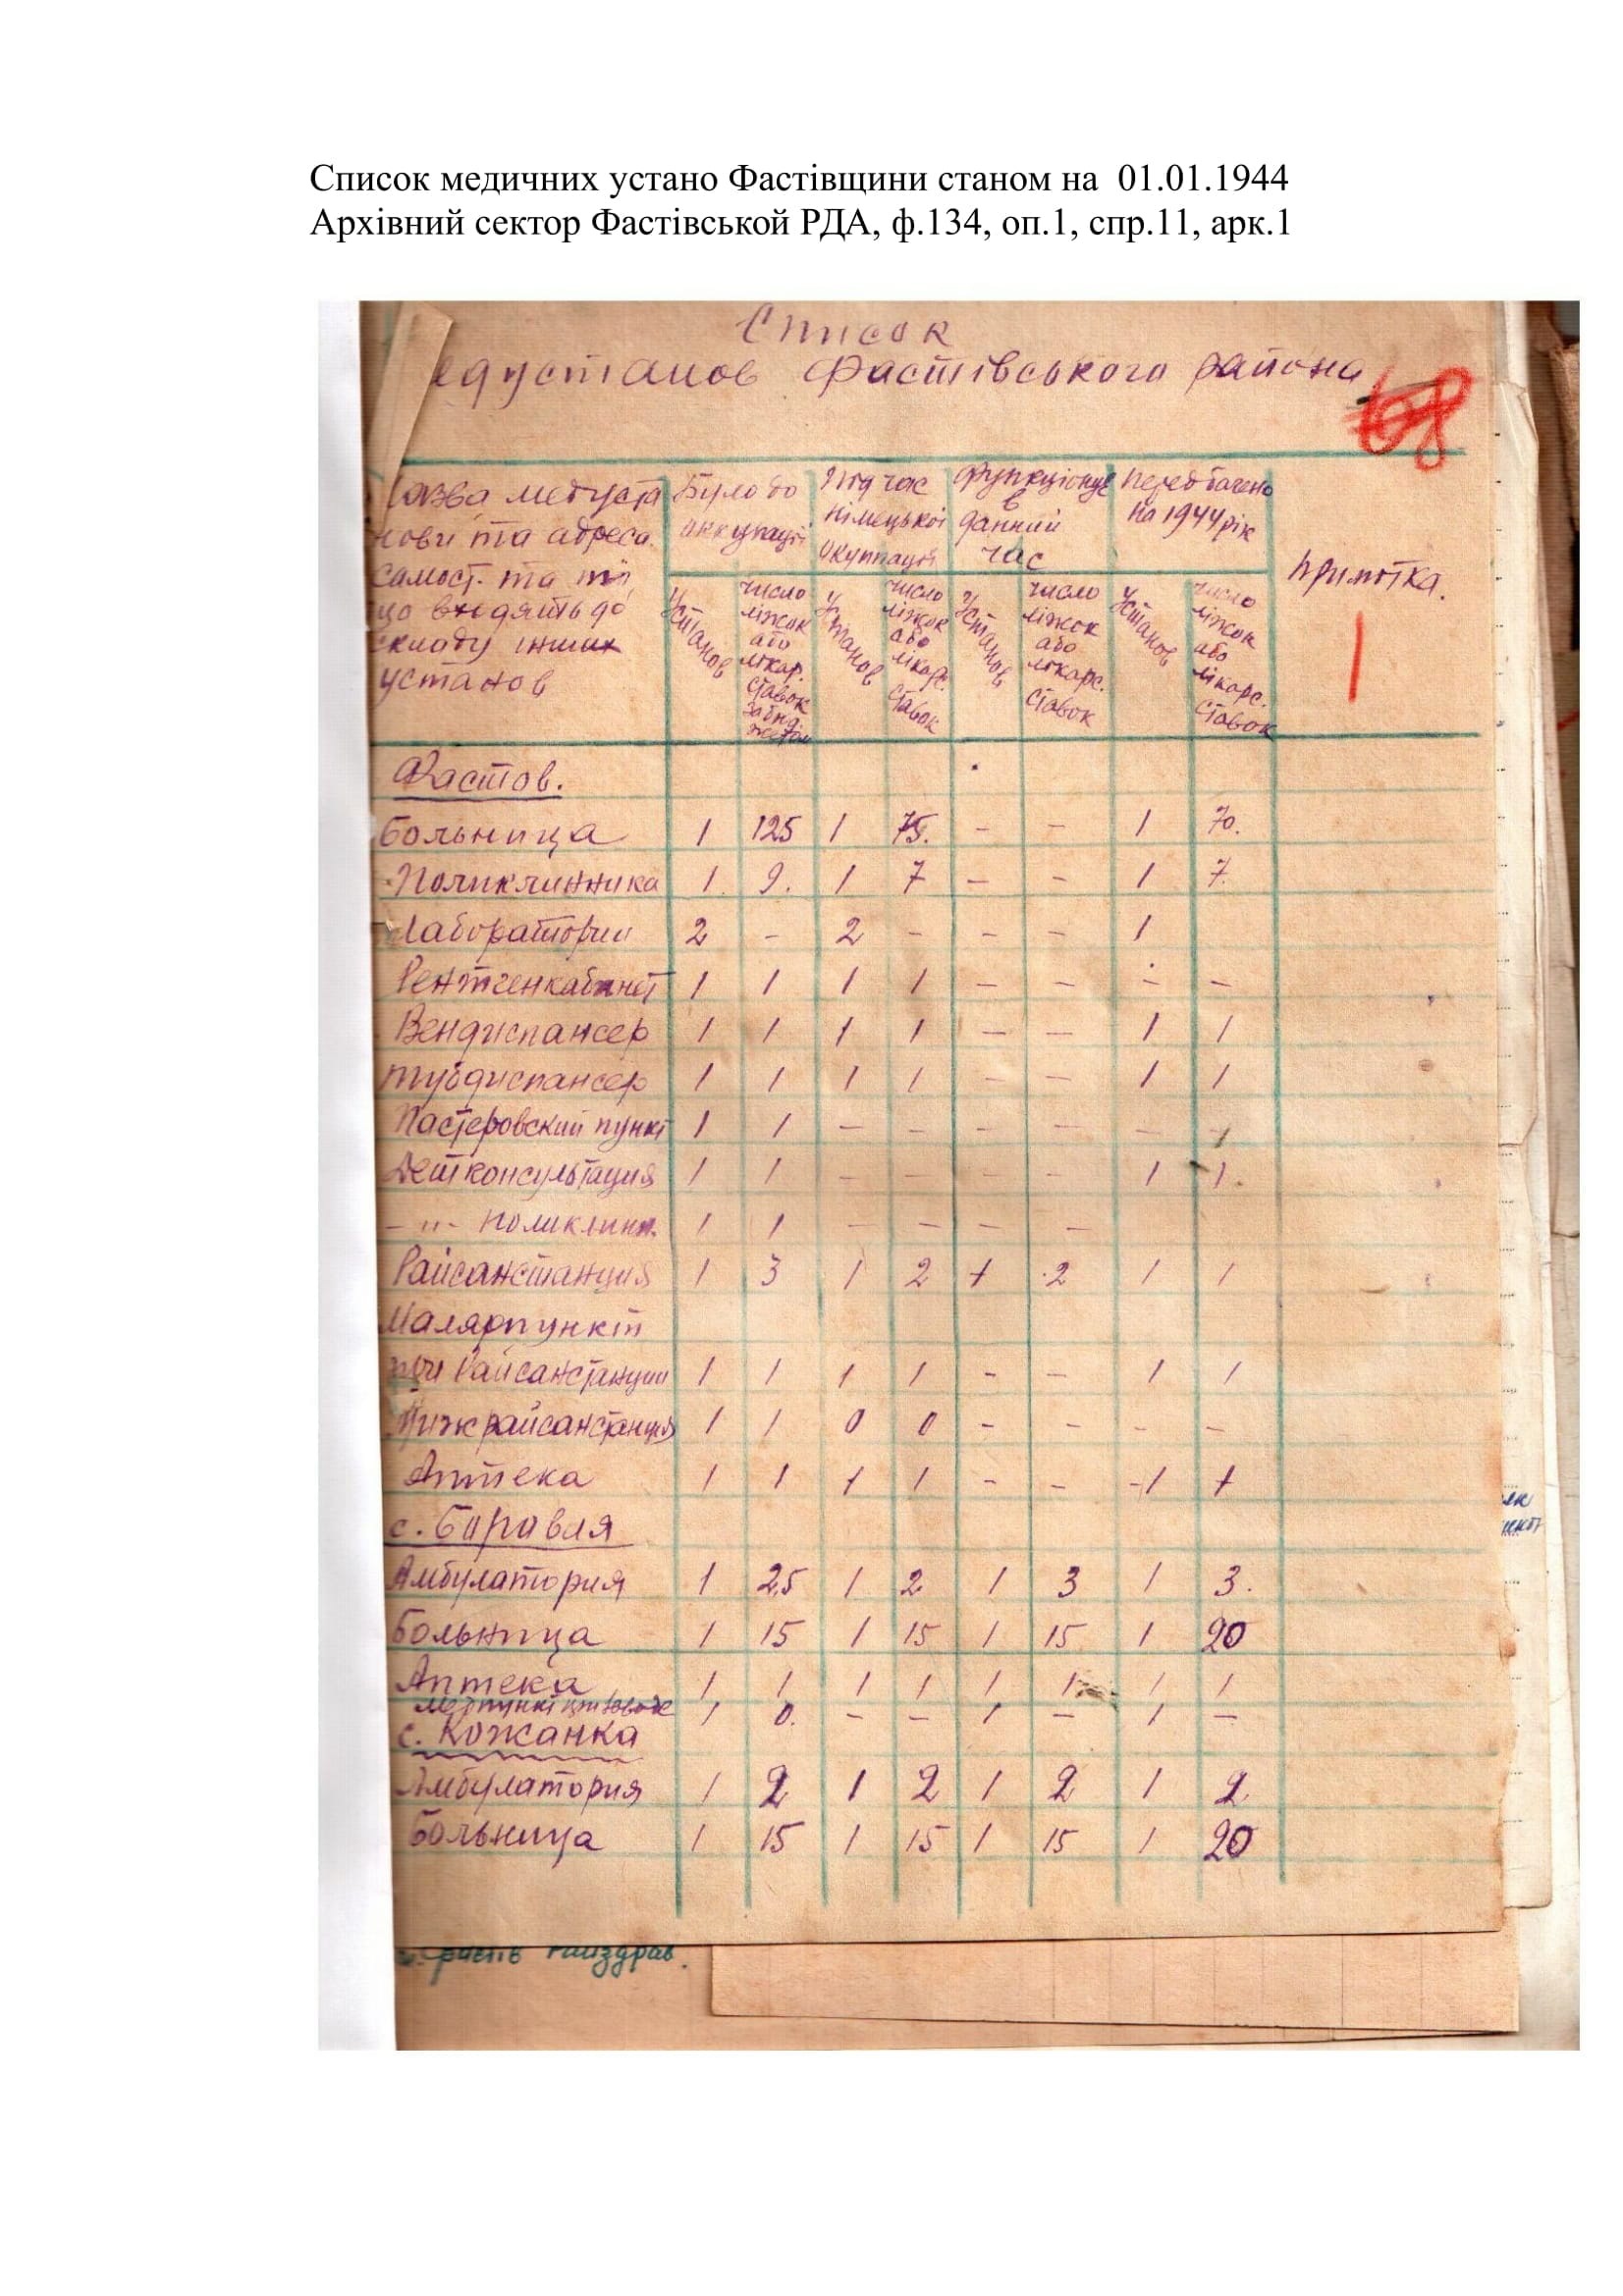 Список медичних устано Фастівщини станом на 01.01.1944
Архівний сектор Фастівської РДА, ф.134, оп.1, спр.11, арк.1
Список
едустанов Фастівського района
68
азва медуста Було до Під час функціонує Передбачено
нови та адреса оккупації німецької в на 1944 рік
самост. та ті окуппації данний примітка.
що входять до час
складу інших
установ
Установ число ліжок або лікар. ставок Установ число ліжок або лікарс. ставок Установ число ліжок або лікарс. ставок Установ число ліжок або лікарс. ставок
1
Фастов.
Больница 1 125 1 75. – – 1 70.
Поликлинника 1. 9. 1 7 – – 1 7.
Лаборатории 2 – 2 – – – 1
Рентгенкабинет 1 1 1 1 – – – –
Вендиспансер 1 1 1 1 – – 1 1
тубдиспансер 1 1 1 1 – – 1 1
Пастеровский пункт 1 1 – – – – – –
Детконсультация 1 1 – – – – 1 1.
– " – поликлин. 1 1 – – – –
Райсанстанция 1 3 1 2 1 2 1 1
Малярпункт
при Райсанстанции 1 1 1 1 – – 1 1
райсанстанция 1 1 0 0 – – – –
Аптека 1 1 1 1 – – -1 1
с. Боровая
Амбулатория 1 2,5 1 2 1 3 1 3.
Больница 1 15 1 15 1 15 1 20
Аптека 1 1 1 1 1 1 1 1
медпункт 1 0. – – 1 – 1 –
с. Кожанка
Амбулатория 1 2 1 2 1 2 1 2
Больница 1 15 1 15 1 15 1 20
Фастів Райздрав.